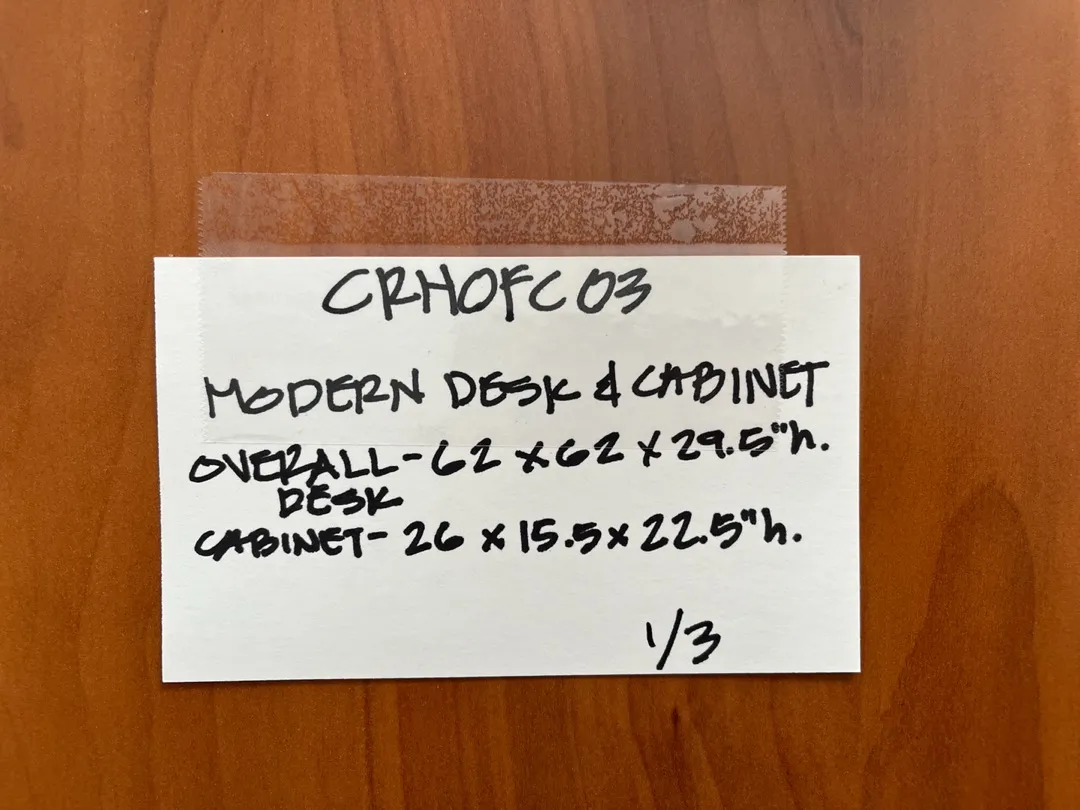 CRHOFC03
MODERN DESK & CABINET
OVERALL - 62 x 62 x 29.5"h.
DESK
CABINET - 26 x 15.5 x 22.5"h.
1/3